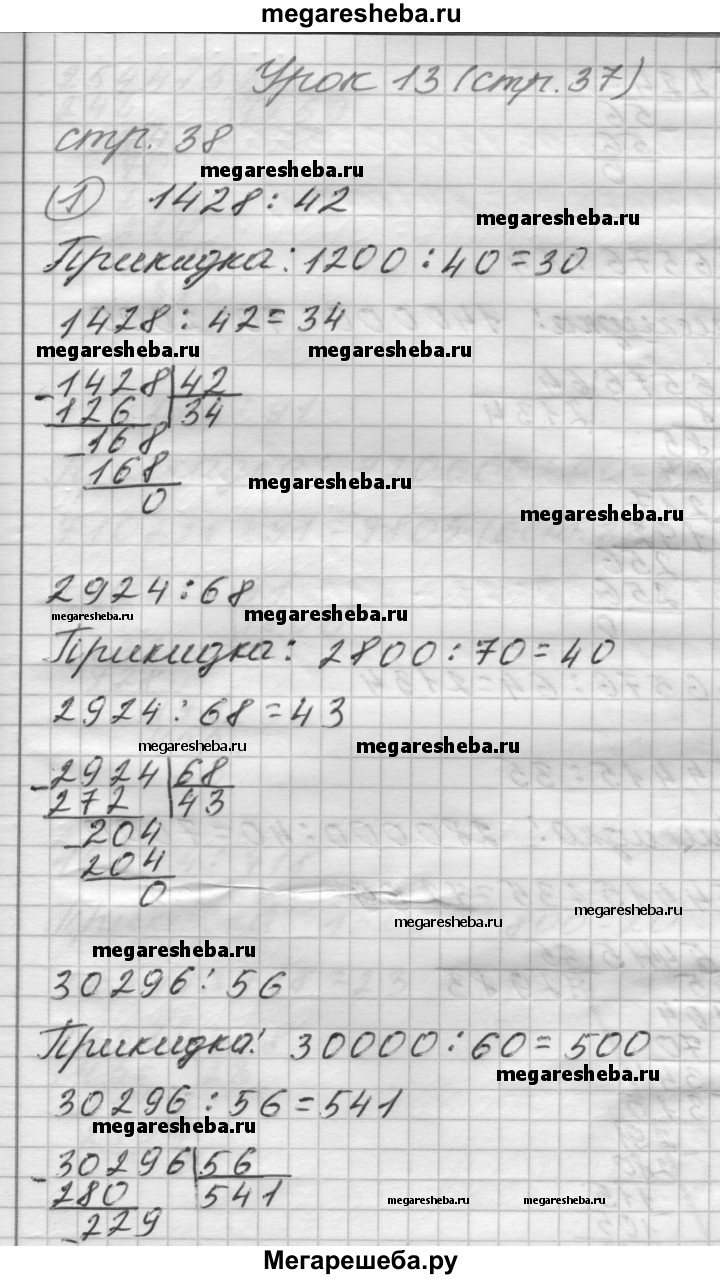 megaresheba.ru
Урок 13 (стр. 37)
стр. 38
megaresheba.ru
1 1428 : 42
megaresheba.ru
Прикидка: 1200 : 40 = 30
1428 : 42 = 34
megaresheba.ru megaresheba.ru
- 1428 | 42
126 | 34
- 168
168
0
megaresheba.ru
megaresheba.ru
2924 : 68
megaresheba.ru megaresheba.ru
Прикидка: 2800 : 70 = 40
2924 : 68 = 43
megaresheba.ru megaresheba.ru
- 2924 | 68
272 | 43
- 204
204
0
megaresheba.ru megaresheba.ru
megaresheba.ru
30296 : 56
Прикидка: 30000 : 60 = 500
megaresheba.ru
30296 : 56 = 541
megaresheba.ru
- 30296 | 56
280 | 541
megaresheba.ru megaresheba.ru
- 229
Мегарешеба.ру